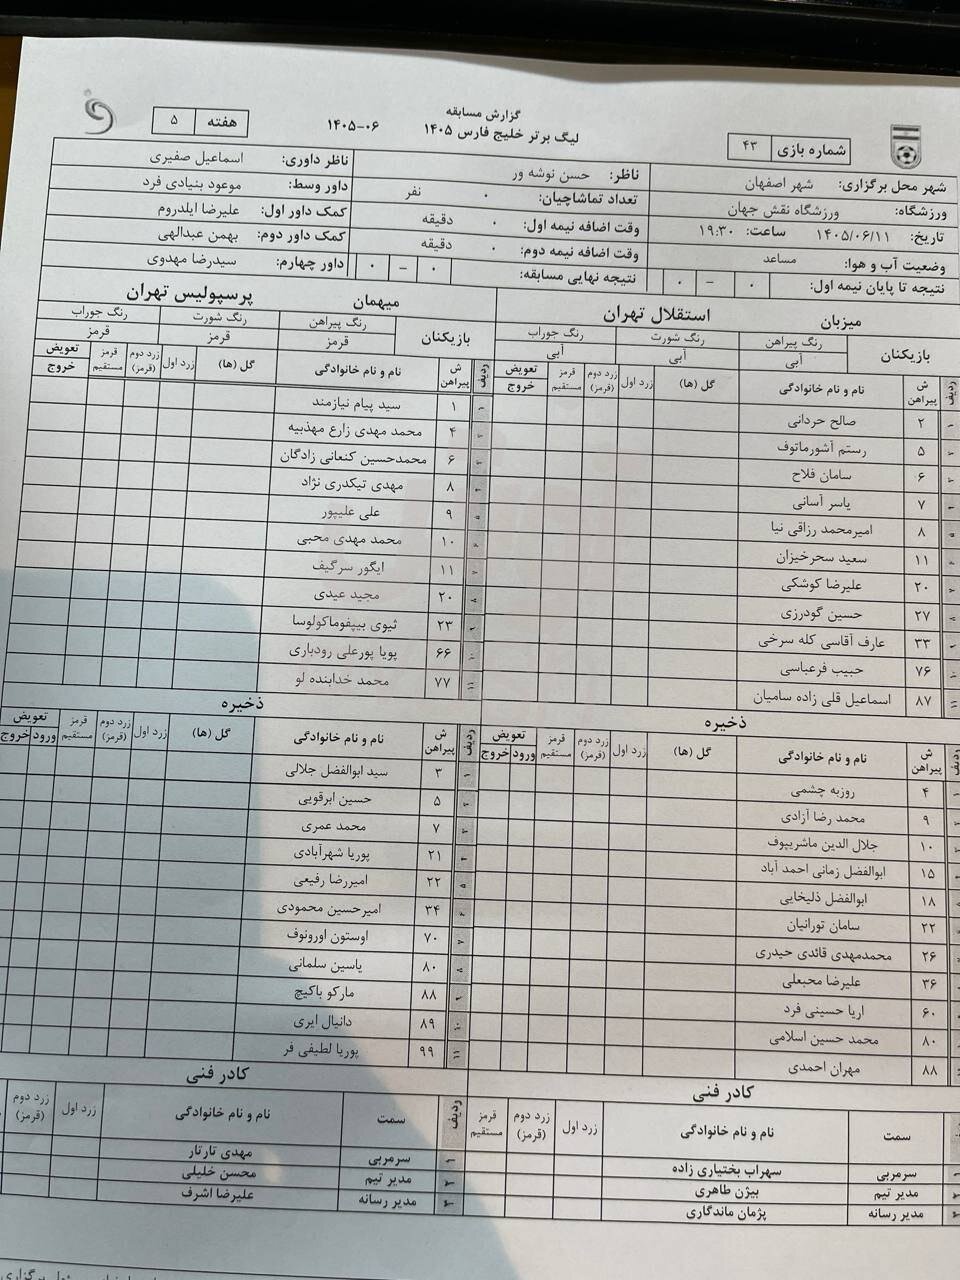 گزارش مسابقه
لیگ برتر خلیج فارس ۱۴۰۵
۱۴۰۵-۰۶
هفته ۵
شماره بازی ۴۳
شهر محل برگزاری: شهر اصفهان
ورزشگاه: ورزشگاه نقش جهان
تاریخ: ۱۴۰۵/۰۶/۱۱ ساعت: ۱۹:۳۰
وضعیت آب و هوا: مساعد
نتیجه تا پایان نیمه اول: ۰ – ۰
ناظر: حسن نوشه ور
تعداد تماشاچیان: ۰ نفر
وقت اضافه نیمه اول: ۰ دقیقه
وقت اضافه نیمه دوم: ۰ دقیقه
نتیجه نهایی مسابقه: ۰ – ۰
ناظر داوری: اسماعیل صفیری
داور وسط: موعود بنیادی فرد
کمک داور اول: علیرضا ایلدروم
کمک داور دوم: بهمن عبدالهی
داور چهارم: سیدرضا مهدوی
میزبان استقلال تهران
بازیکنان رنگ پیراهن رنگ شورت رنگ جوراب
آبی آبی آبی
ردیف ش پیراهن نام و نام خانوادگی گل (ها) زرد اول زرد دوم (قرمز) قرمز مستقیم تعویض خروج
۱ ۲ صالح حردانی
۲ ۵ رستم آشورماتوف
۳ ۶ سامان فلاح
۴ ۷ یاسر آسانی
۵ ۸ امیرمحمد رزاقی نیا
۶ ۱۱ سعید سحرخیزان
۷ ۲۰ علیرضا کوشکی
۸ ۲۷ حسین گودرزی
۹ ۳۳ عارف آقاسی کله سرخی
۱۰ ۷۶ حبیب فرعباسی
۱۱ ۸۷ اسماعیل قلی زاده سامیان
ذخیره
ردیف ش پیراهن نام و نام خانوادگی گل (ها) زرد اول زرد دوم (قرمز) قرمز مستقیم تعویض ورود خروج
۱ ۴ روزبه چشمی
۲ ۹ محمد رضا آزادی
۳ ۱۰ جلال الدین ماشریپوف
۴ ۱۵ ابوالفضل زمانی احمد آباد
۵ ۱۸ ابوالفضل ذلیخایی
۶ ۲۲ سامان تورانیان
۷ ۲۶ محمدمهدی قائدی حیدری
۸ ۳۶ علیرضا محبعلی
۹ ۶۰ اریا حسینی فرد
۱۰ ۸۰ محمد حسین اسلامی
۱۱ ۸۸ مهران احمدی
کادر فنی
سمت نام و نام خانوادگی زرد اول زرد دوم (قرمز) قرمز مستقیم
۱ سرمربی سهراب بختیاری زاده
۲ مدیر تیم بیژن طاهری
۳ مدیر رسانه پژمان ماندگاری
میهمان پرسپولیس تهران
بازیکنان رنگ پیراهن رنگ شورت رنگ جوراب
قرمز قرمز قرمز
ردیف ش پیراهن نام و نام خانوادگی گل (ها) زرد اول زرد دوم (قرمز) قرمز مستقیم تعویض خروج
۱ ۱ سید پیام نیازمند
۲ ۴ محمد مهدی زارع مهذبیه
۳ ۶ محمدحسین کنعانی زادگان
۴ ۸ مهدی تیکدری نژاد
۵ ۹ علی علیپور
۶ ۱۰ محمد مهدی محبی
۷ ۱۱ ایگور سرگیف
۸ ۲۰ مجید عیدی
۹ ۲۳ ثیوی بیپفوماکولوسا
۱۰ ۶۶ پویا پورعلی رودباری
۱۱ ۷۷ محمد خدابنده لو
ذخیره
ردیف ش پیراهن نام و نام خانوادگی گل (ها) زرد اول زرد دوم (قرمز) قرمز مستقیم تعویض ورود خروج
۱ ۳ سید ابوالفضل جلالی
۲ ۵ حسین ابرقویی
۳ ۷ محمد عمری
۴ ۲۱ پوریا شهرآبادی
۵ ۲۲ امیررضا رفیعی
۶ ۳۴ امیرحسین محمودی
۷ ۷۰ اوستون اورونوف
۸ ۸۰ یاسین سلمانی
۹ ۸۸ مارکو باکیچ
۱۰ ۸۹ دانیال ایری
۱۱ ۹۹ پوریا لطیفی فر
کادر فنی
ردیف سمت نام و نام خانوادگی زرد اول زرد دوم (قرمز)
۱ سرمربی مهدی تارتار
۲ مدیر تیم محسن خلیلی
۳ مدیر رسانه علیرضا اشرف